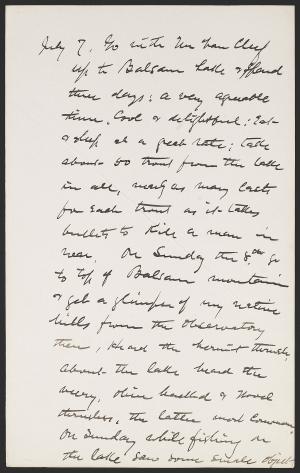 July 7. Go with Mr Van Cleef
up to Balsam Lake & spend
three days; a very agreeable
time. Cool & delightful; Eat
& sleep at a great rate; take
about 50 trout from the lake
in all, nearly as many casts
for each trout as it takes
bullets to kill a man in
war. On Sunday the 8th go
to top of Balsam mountain
& get a glimpse of my native
hills from the observatory
there, Heard the hermit thrush,
about the lake heard the
veery, olive backed & Wood
thrushes, the latter most common
On Sunday while fishing on
the lake saw some small object